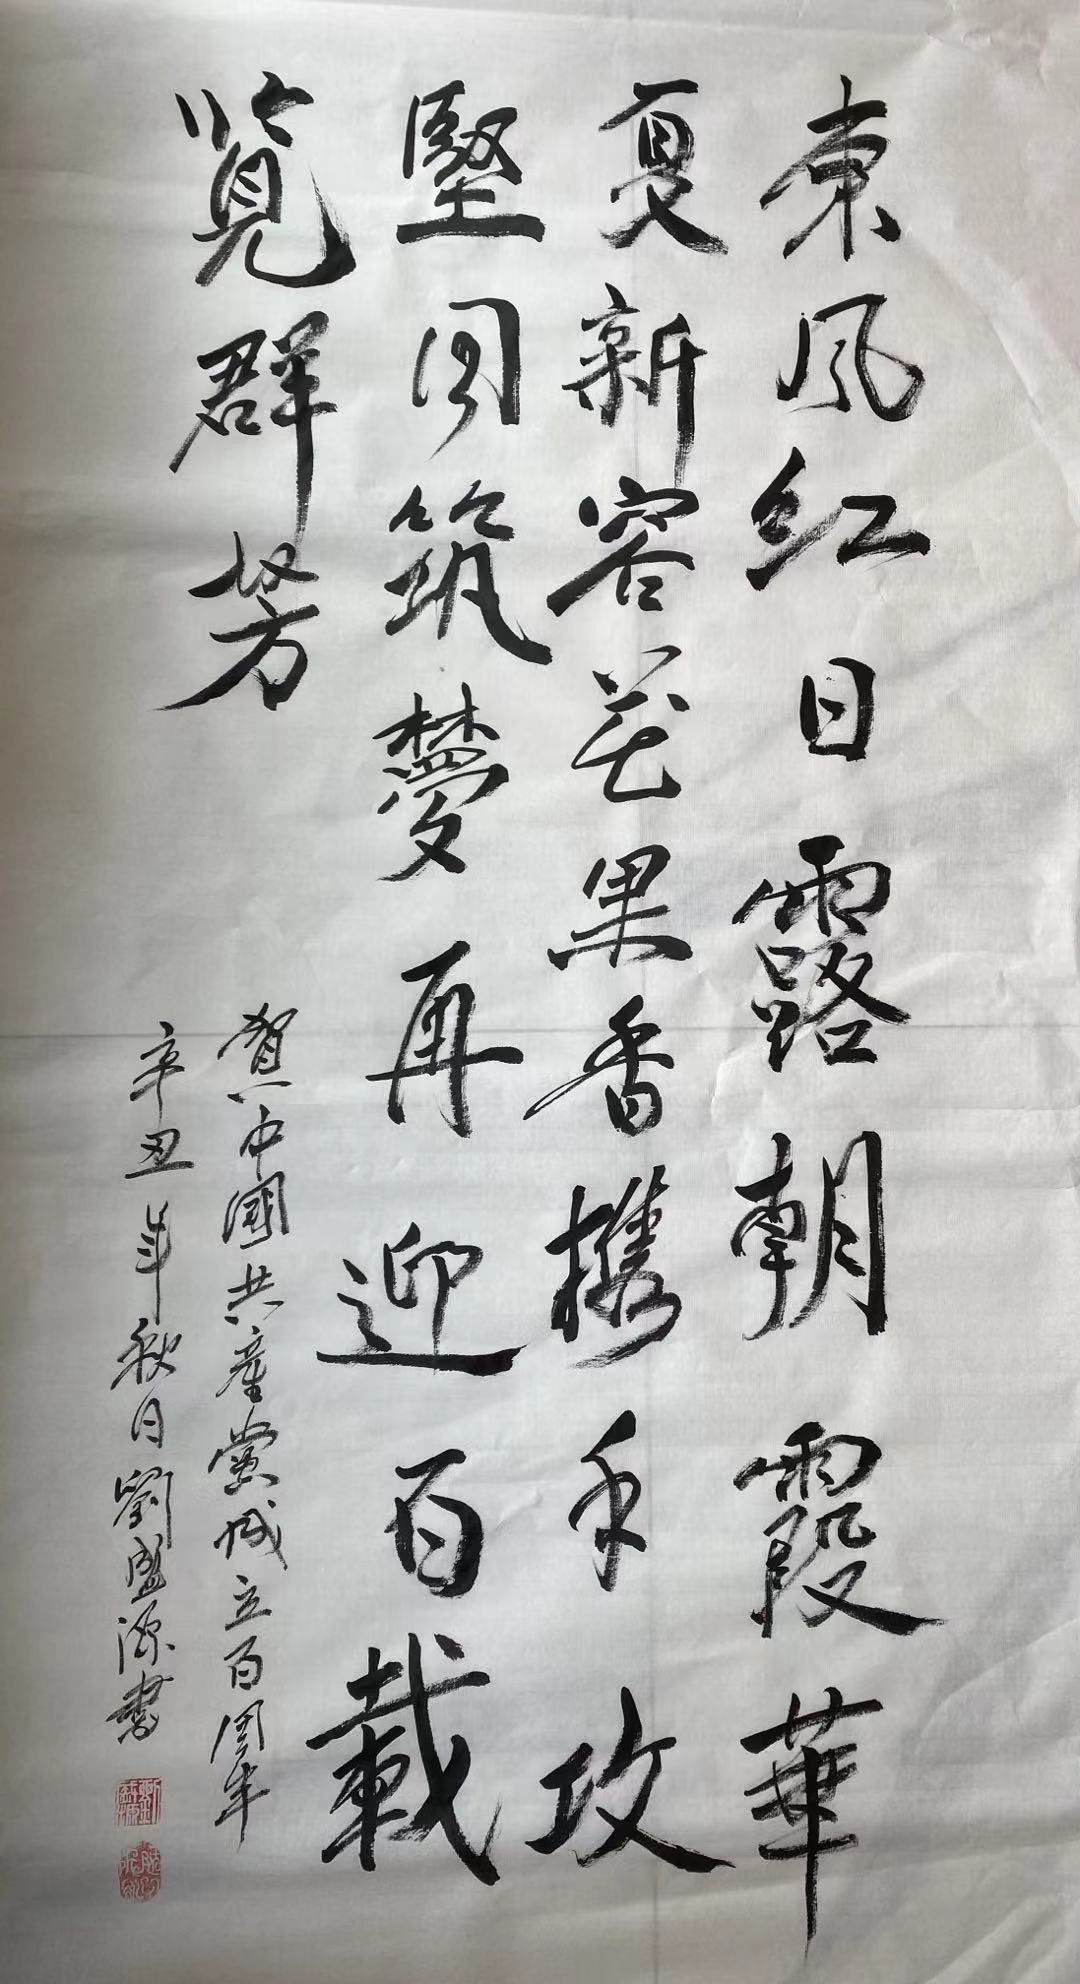 東風紅日露朝霞華
夏新容花果香攜手攻
堅同筑夢再迎百載
覽群芳
賀中國共產黨成立百周年
辛丑年秋日劉盛源書